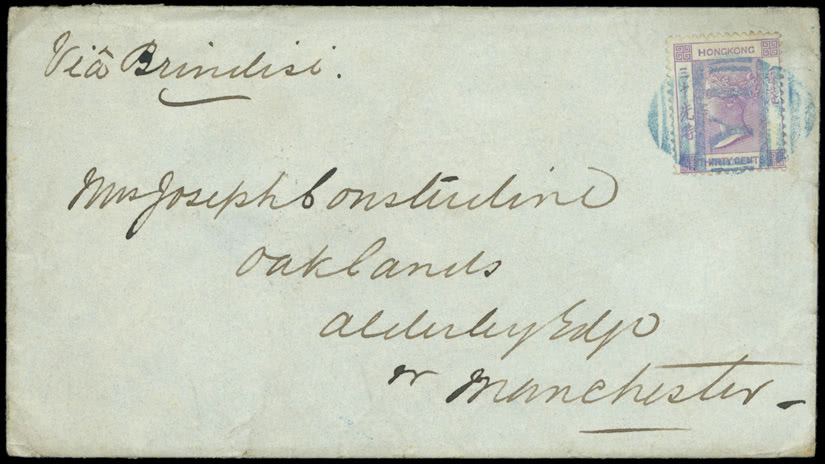 Viâ Brindisi.
HONGKONG
THIRTY CENTS
Mrs Joseph Consterdine
Oaklands
Alderley Edge
nr Manchester